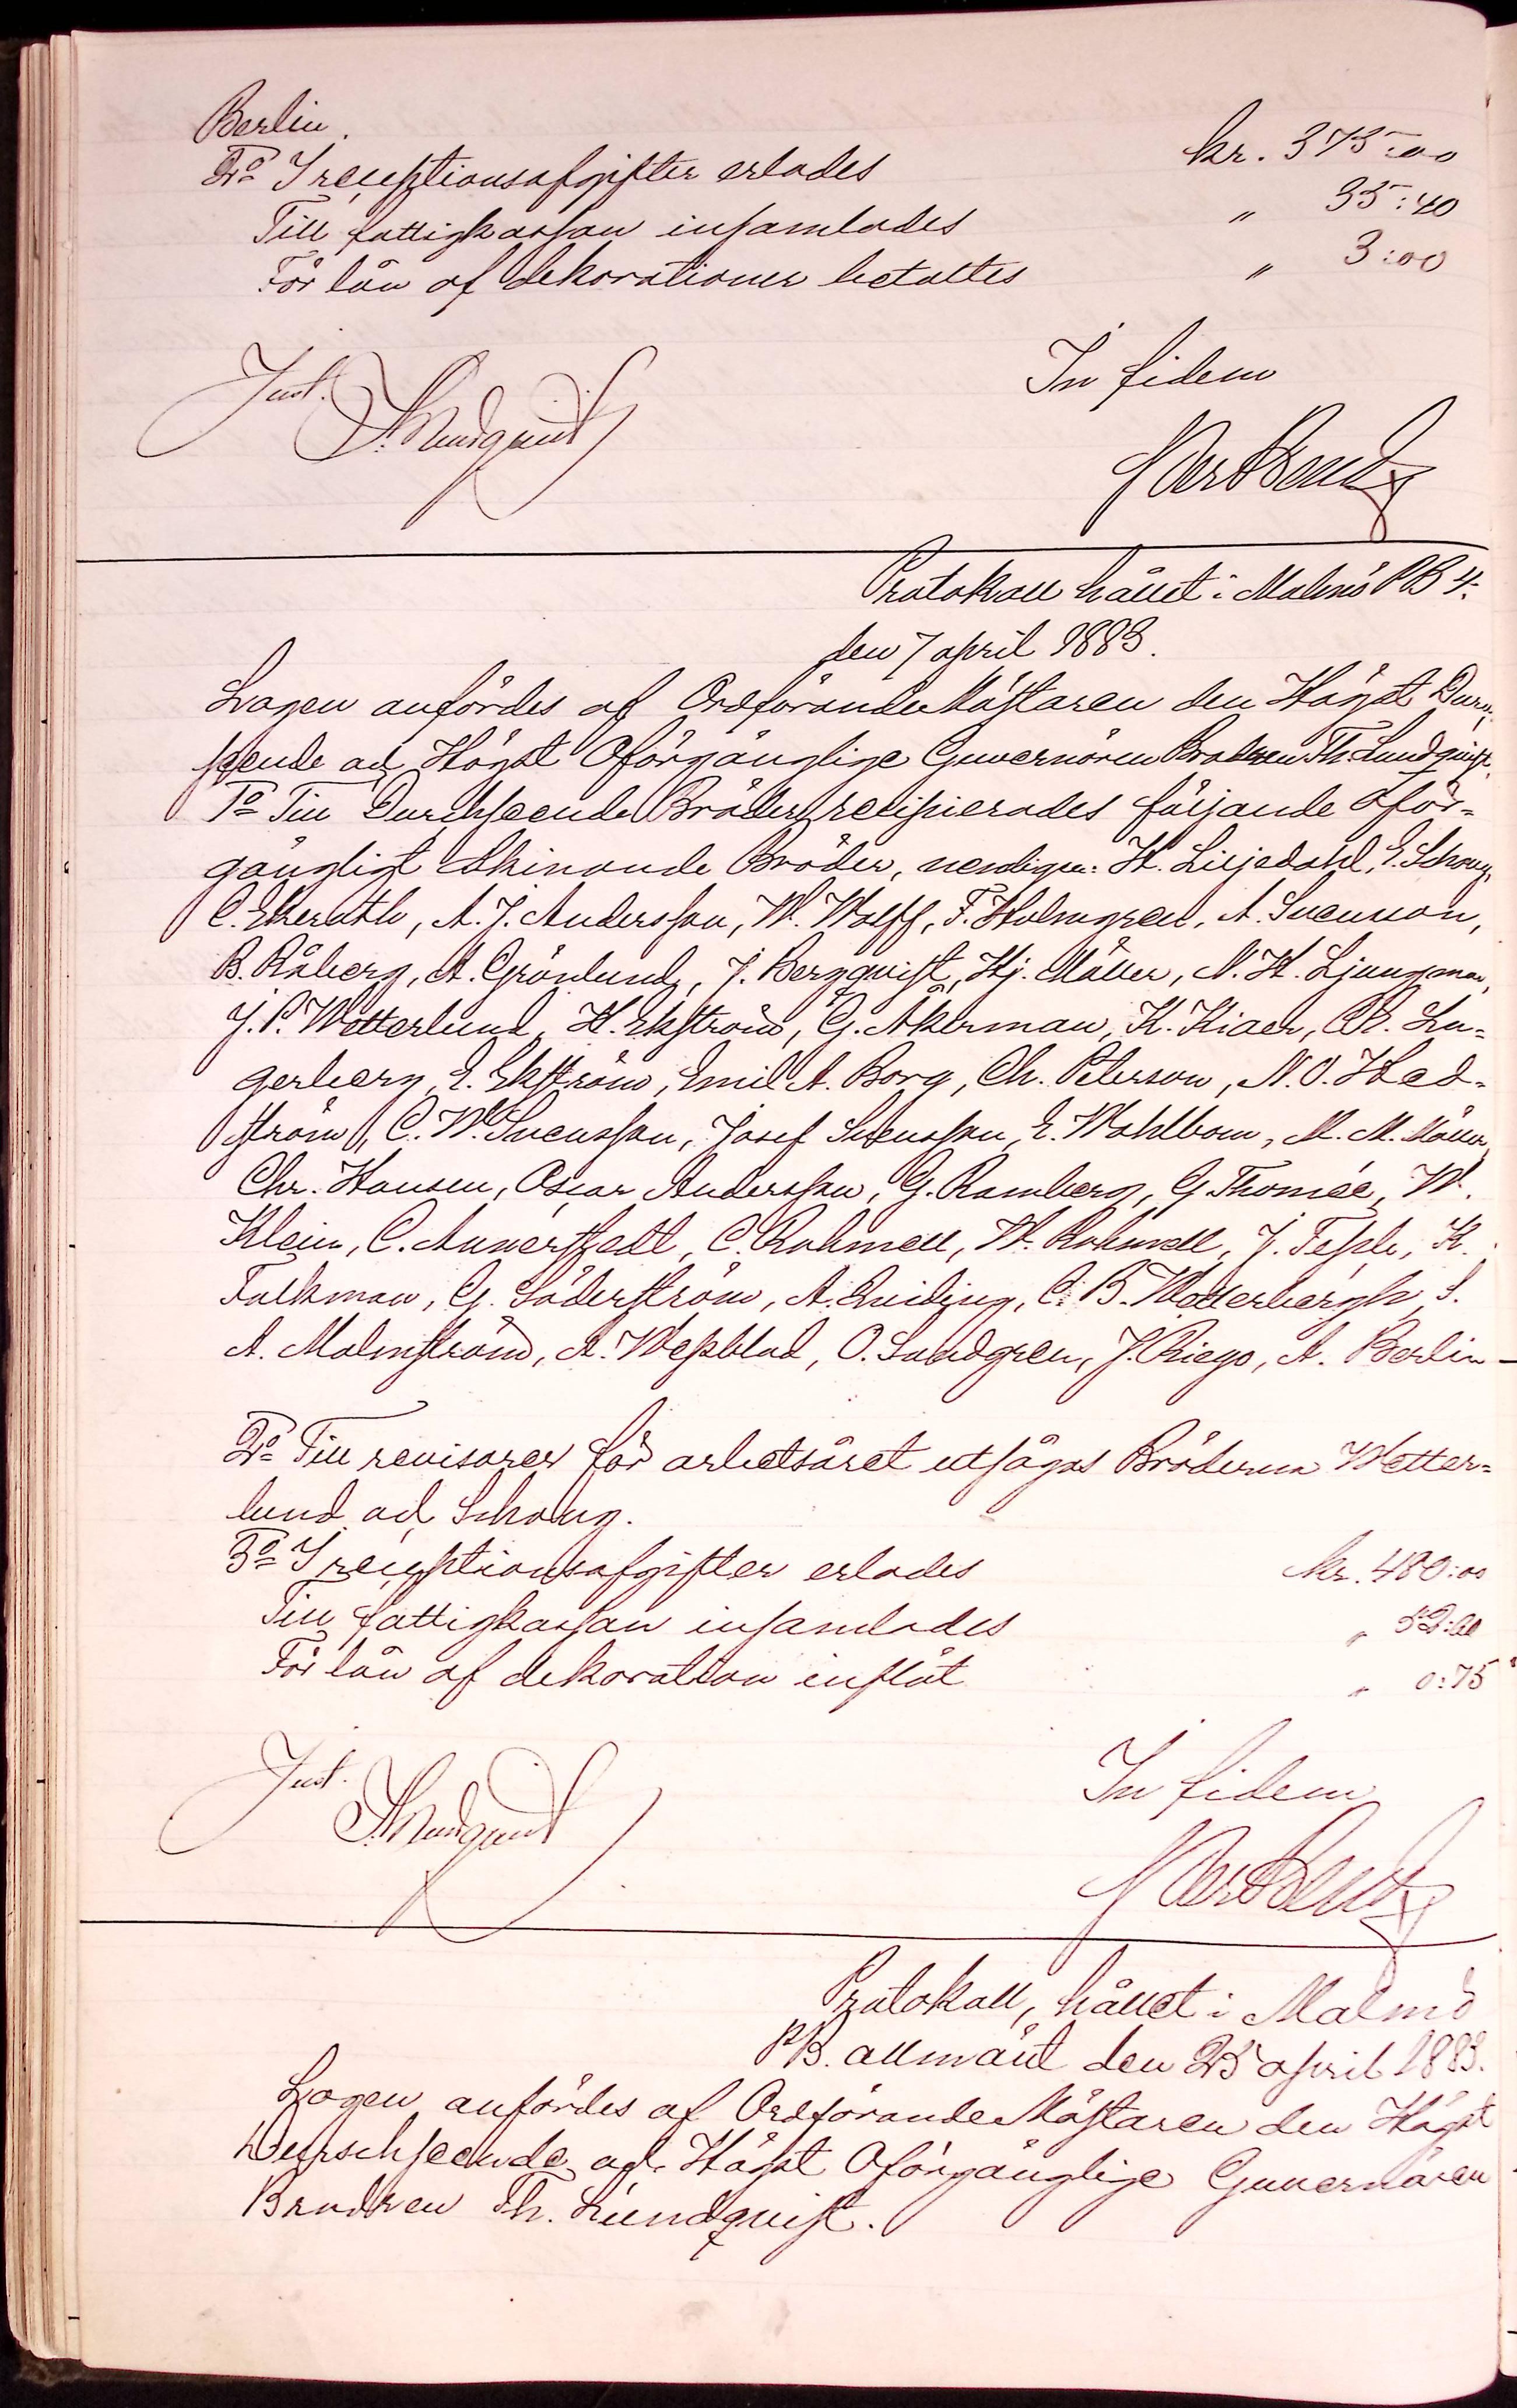 Berlin.
2o I receptionsafgifter erlades kr. 375:00
Till fattigkassan insamlades " 35:40
För lån af dekorationer betaltes " 3:00
Just. In fidem
Th. Lundquist
Protokoll hållet i Malmö PB 4.
den 7 april 1883.
Logen anfördes af OrdförandeMästaren den Högst Durch-
seende och Högst Oförgänglige Guvernören Brodren Th. Lundquist.
1o Till Durchseende Bröder recipierades följande Oför-
gängligt Skinande Bröder, nemligen: H. Liljedahl, E. Schoug,
C. Ekeroth, A. J. Andersson, W. Wolff, F. Holmgren, A. Svenson,
B. Råberg, A. Grönlund, J. Bergquist, Hj. Möller, N. H. Ljungman,
J. P. Wetterlund, H. Ekström, G. Åkerman, K. Kiaer, Ch. La-
gerberg, E. Ekström, Emil A. Borg, Ch. Peterson, N. O. Hed-
ström, C. W. Svensson, Josef Svensson, E. Wahlbom, M. M. Möller,
Chr. Hansen, Oscar Andersson, G. Ramberg, G. Thomée, W.
Klein, C. Annerstedt, C. Rohmell, W. Rohmell, J. Tesch, K.
Falkman, G. Söderström, A. Quiding, C. B. Wetterbergh, S.
A. Malmström, A. Westblad, O. Sundgren, J. Riego, A. Berlin –
2o Till revisorer för arbetsåret utsågos Bröderna Wetter-
lund och Schoug.
3o I receptionsafgifter erlades kr. 480:00
Till fattigkassan insamlades "
För lån af dekoration inflöt " 0:75
Just. In fidem
Th. Lundquist
Protokoll, hållet i Malmö
PB. allmänt den 25 april 1883.
Logen anfördes af OrdförandeMästaren den Högst
Durschseende och Högst Oförgänglige Guvernören
Brodren Th. Lundquist.